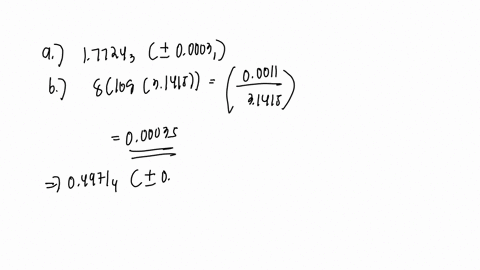 a.) 1.7724₃ (± 0.0003₁)
b.) 8(log (3.1415)) = (0.0011/3.1415)
= 0.00035
⇒ 0.4971/4 (± 0.